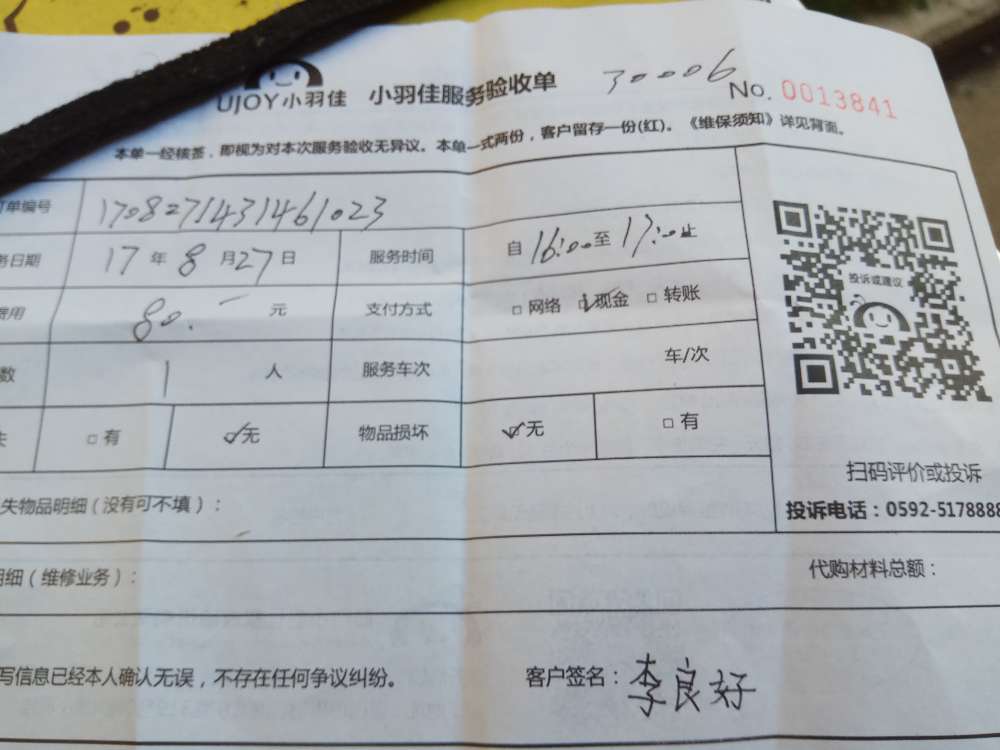 UJOY小羽佳 小羽佳服务验收单 30006 No. 0013841
本单一经核签，即视为对本次服务验收无异议。本单一式两份，客户留存一份(红)。《维保须知》详见背面。
订单编号 1708271431461023
务日期 17 年 8 月 27 日 服务时间 自 16:00 至 17:00 止
费用 80.- 元 支付方式 □ 网络 ☑ 现金 □ 转账
数 1 人 服务车次 车/次
失 □ 有 ☑ 无 物品损坏 ☑ 无 □ 有
投诉或建议
扫码评价或投诉
投诉电话：0592-5178888
失物品明细（没有可不填）：
明细（维修业务）： 代购材料总额：
写信息已经本人确认无误，不存在任何争议纠纷。 客户签名：李良好